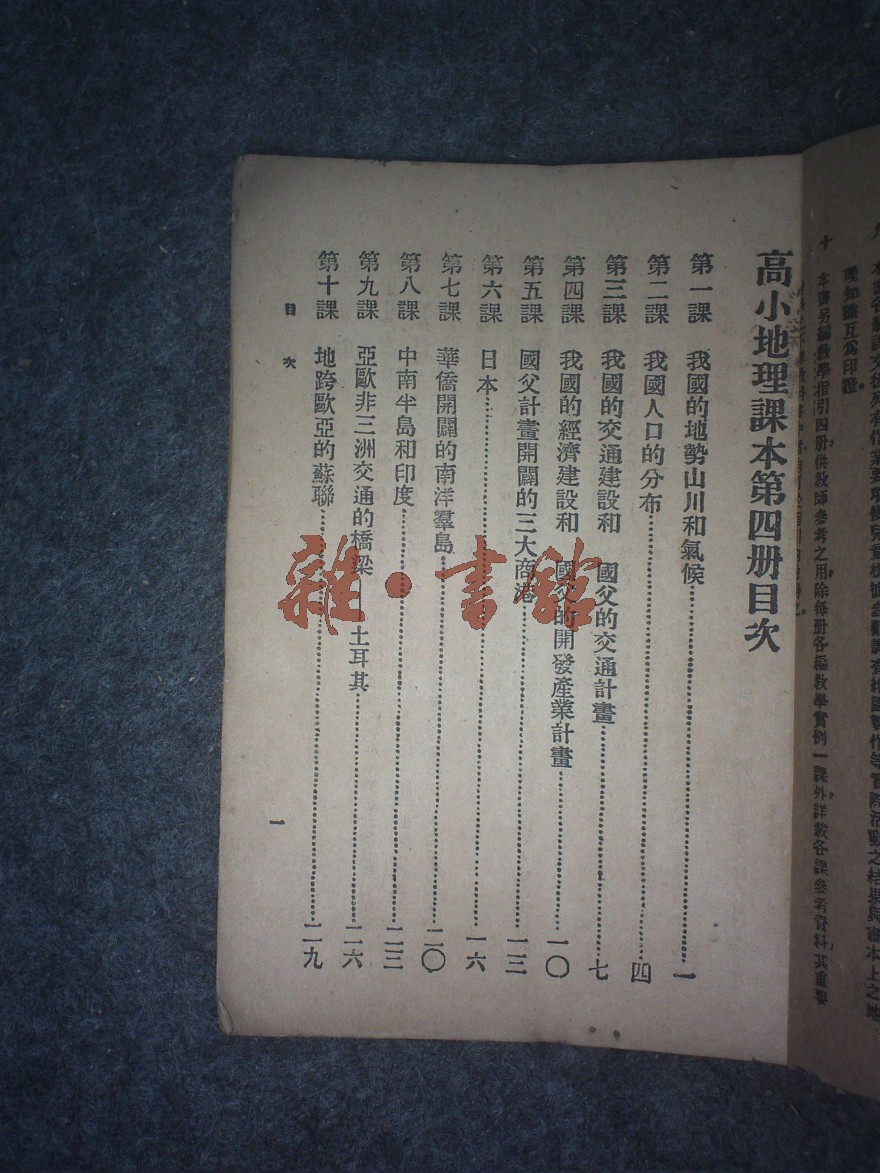 十　本書另編教學指引四册，供教師參考之用，除每册各編教學實例一課外，詳載各課參考資料，其重要
理知識互爲印證。
高小地理課本第四册目次
第一課　我國的地勢山川和氣候……一
第二課　我國人口的分布……四
第三課　我國的交通建設和　國父的交通計畫……七
第四課　我國的經濟建設和　國父的開發產業計畫……一〇
第五課　國父計畫開闢的三大商港……一三
第六課　日本……一六
第七課　華僑開闢的南洋羣島……二〇
第八課　中南半島和印度……二三
第九課　亞歐非三洲交通的橋梁——土耳其……二六
第十課　地跨歐亞的蘇聯……二九
目次
一
雜·書館